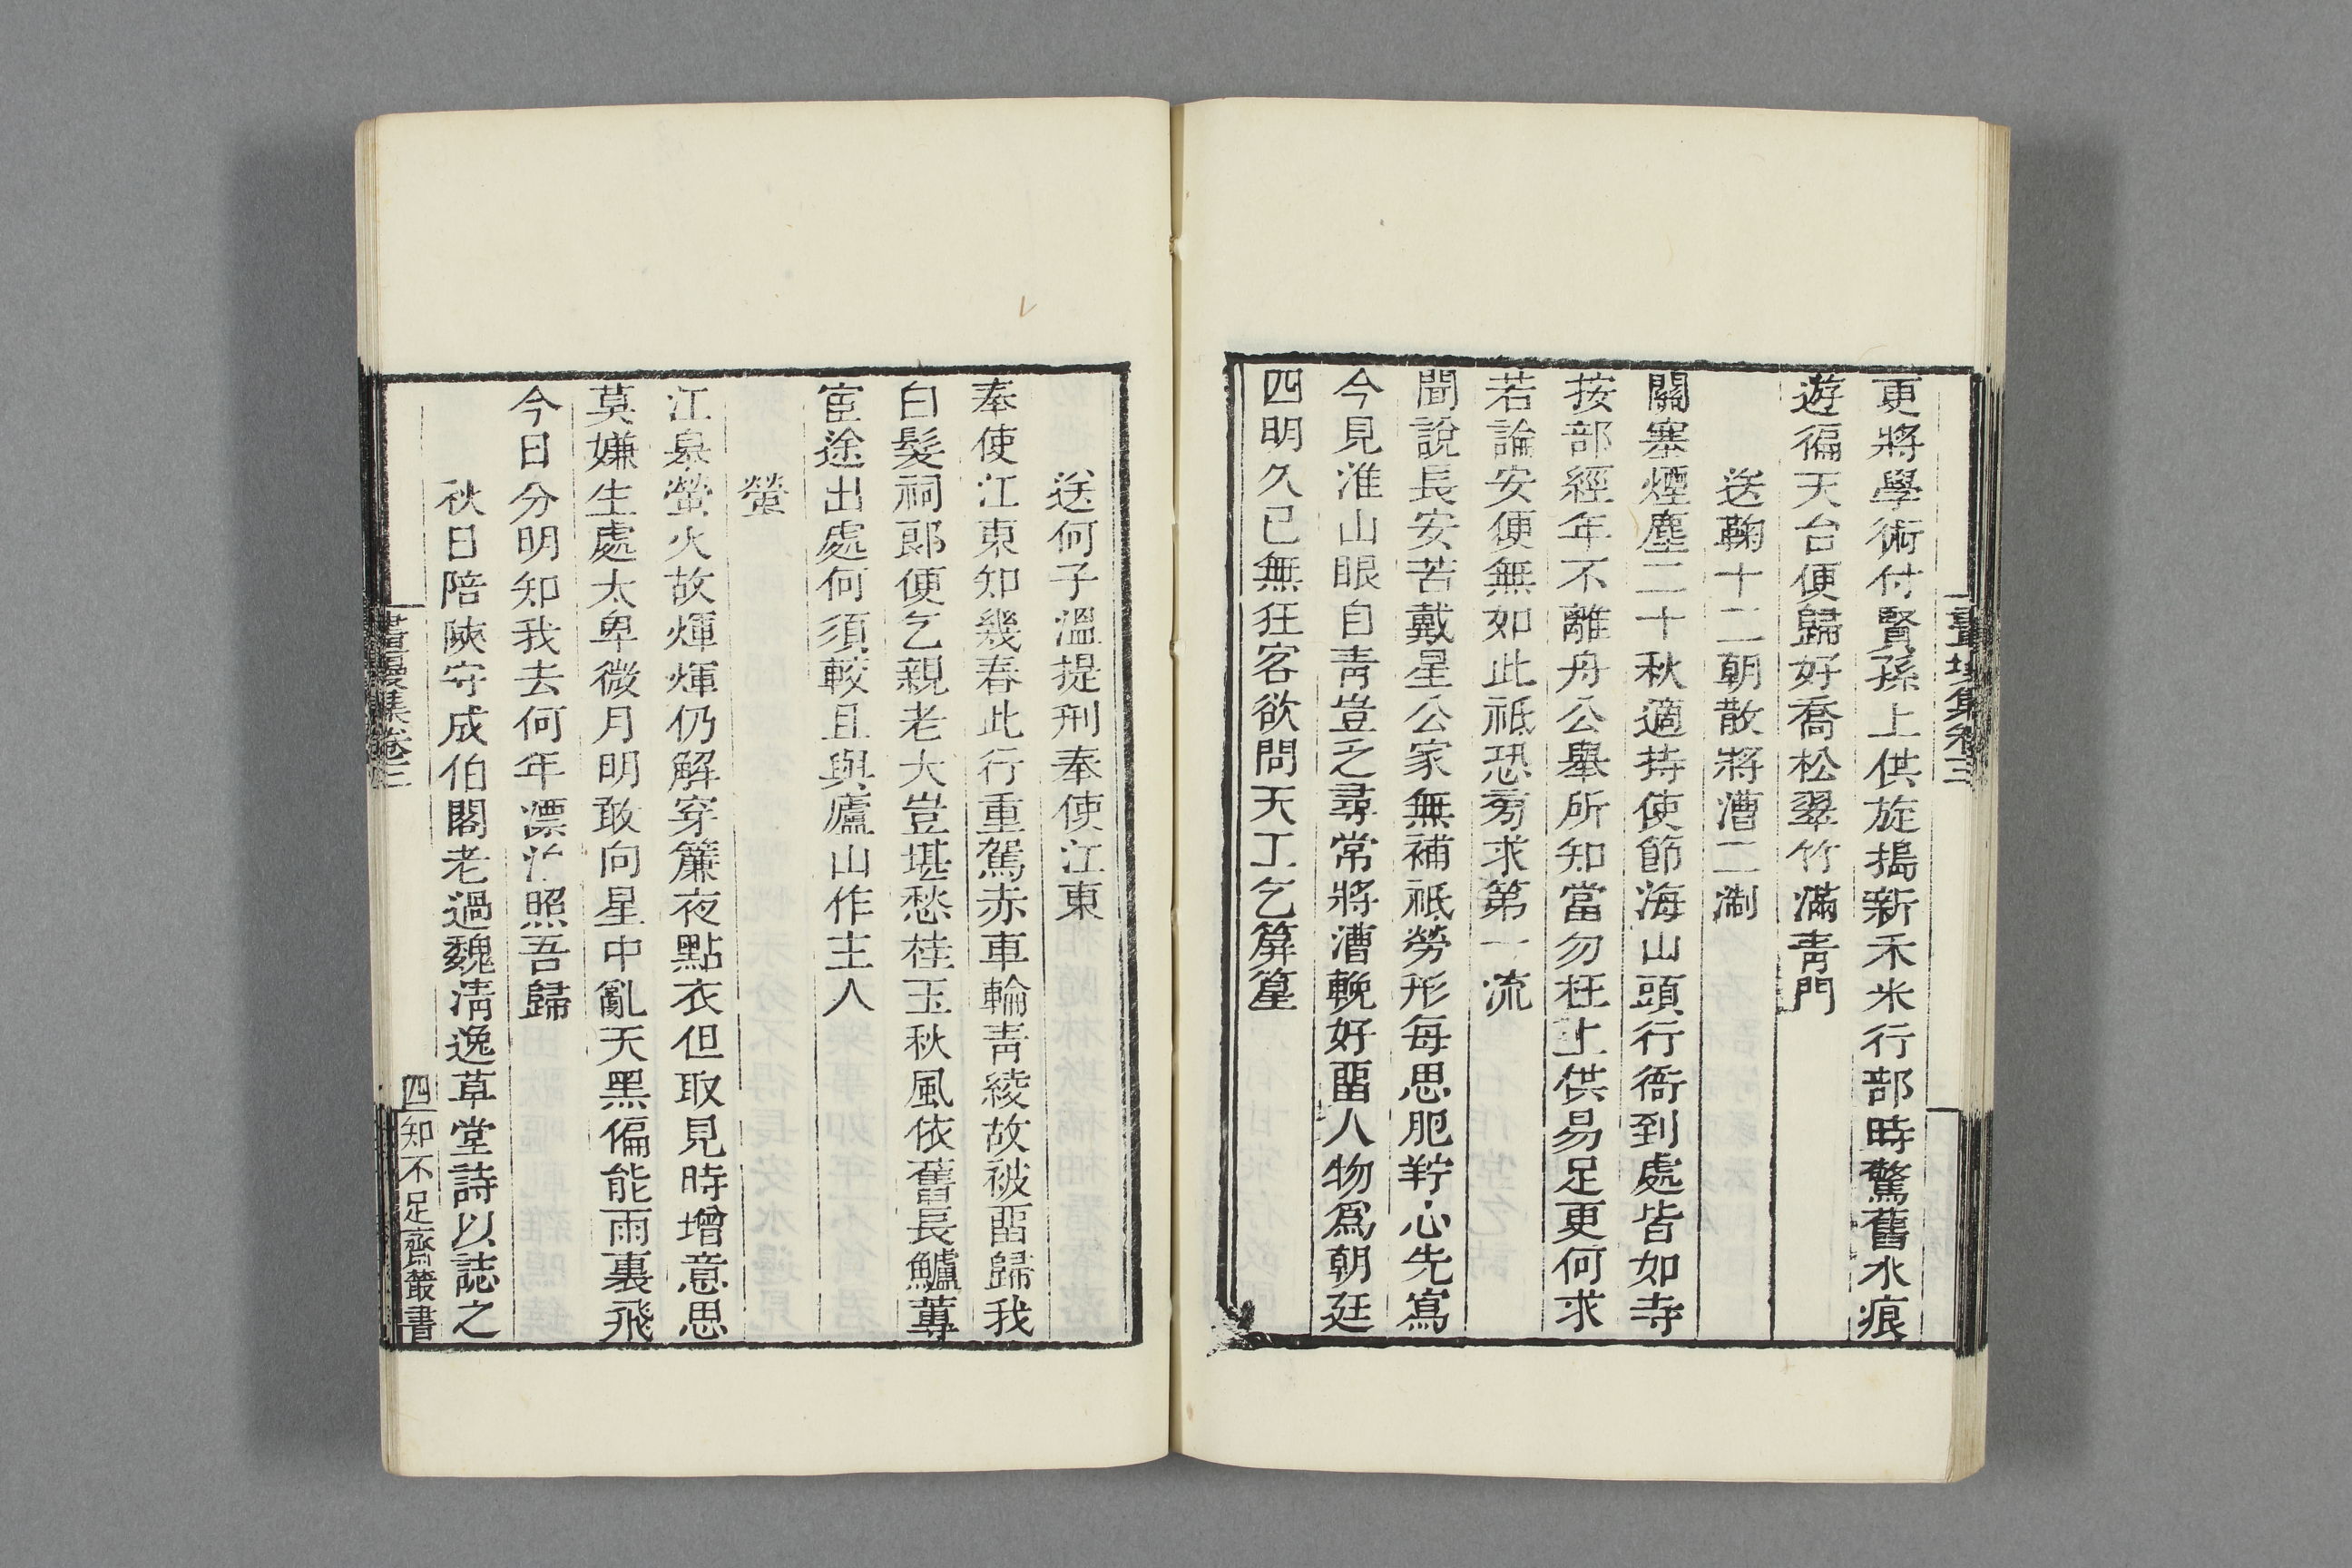 更將學術付賢孫上供旋搗新禾米行部時驚舊水痕
遊徧天台便歸好喬松翠竹滿靑門
送鞠十二朝散將漕二淛
關塞煙塵二十秋適持使節海山頭行衙到處皆如寺
按部經年不離舟公舉所知當勿枉上供易足更何求
若論安便無如此祗恐旁求第一流
聞說長安苦戴星公家無補祗勞形每思肥羜心先寫
今見淮山眼自靑豈乏尋常將漕輓好畱人物爲朝廷
四明久已無狂客欲問天工乞箳篁
送何子溫提刑奉使江東
奉使江東知幾春此行重駕赤車輪靑綾故被畱歸我
白髮祠郞便乞親老大豈堪愁桂玉秋風依舊長鱸蓴
宦途出處何須較且與廬山作主人
螢
江臯螢火故煇煇仍解穿簾夜點衣但取見時增意思
莫嫌生處太卑微月明敢向星中亂天黑偏能雨裏飛
今日分明知我去何年漂泊照吾歸
秋日陪陝守成伯閣老過魏淸逸草堂詩以誌之
畫墁集卷三
四
知不足齋叢書